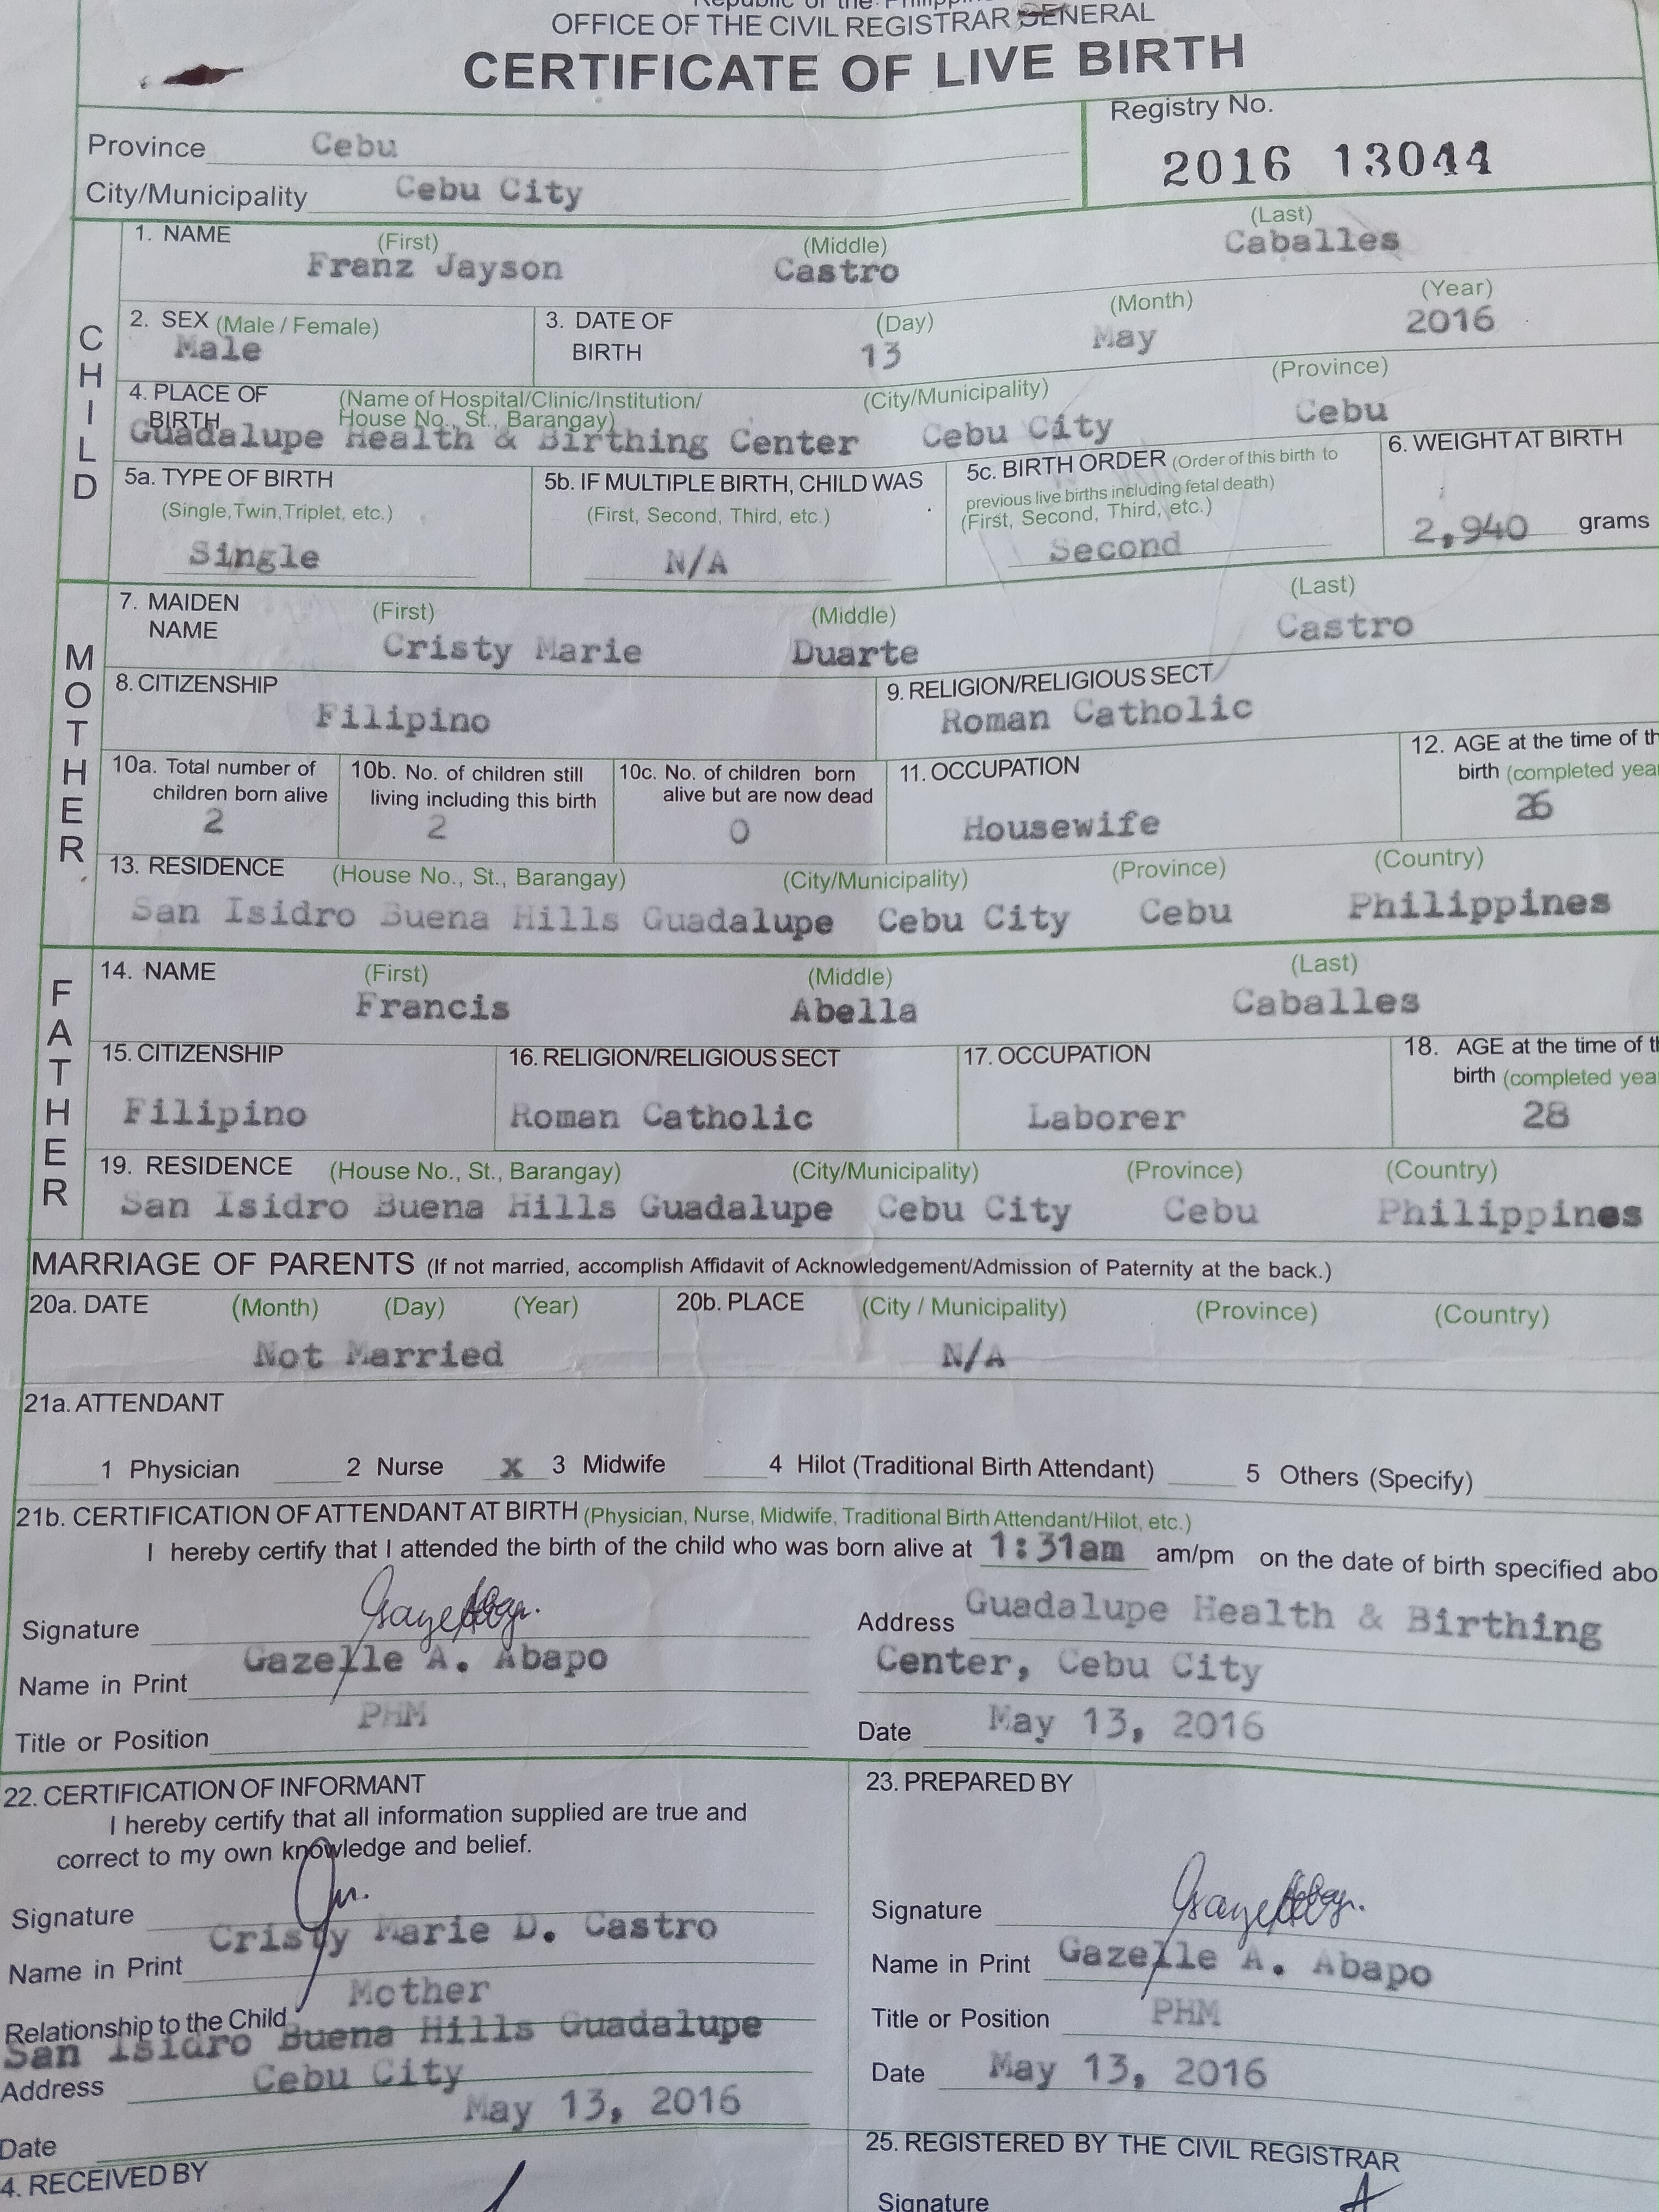 OFFICE OF THE CIVIL REGISTRAR GENERAL
CERTIFICATE OF LIVE BIRTH
Registry No.
Province Cebu
2016 13044
City/Municipality Cebu City
CHILD
1. NAME (First) (Middle) (Last)
Franz Jayson Castro Caballes
2. SEX (Male / Female) 3. DATE OF BIRTH (Day) (Month) (Year)
Male 13 May 2016
4. PLACE OF BIRTH (Name of Hospital/Clinic/Institution/ House No., St., Barangay) (City/Municipality) (Province)
Guadalupe Health & Birthing Center Cebu City Cebu
5a. TYPE OF BIRTH 5b. IF MULTIPLE BIRTH, CHILD WAS 5c. BIRTH ORDER (Order of this birth to 6. WEIGHT AT BIRTH
previous live births including fetal death)
(Single, Twin, Triplet, etc.) (First, Second, Third, etc.) (First, Second, Third, etc.)
Single N/A Second 2,940 grams
MOTHER
7. MAIDEN NAME (First) (Middle) (Last)
Cristy Marie Duarte Castro
8. CITIZENSHIP 9. RELIGION/RELIGIOUS SECT
Filipino Roman Catholic
10a. Total number of 10b. No. of children still 10c. No. of children born 11. OCCUPATION 12. AGE at the time of
children born alive living including this birth alive but are now dead birth (completed
2 2 0 Housewife 26
13. RESIDENCE (House No., St., Barangay) (City/Municipality) (Province) (Country)
San Isidro Buena Hills Guadalupe Cebu City Cebu Philippines
FATHER
14. NAME (First) (Middle) (Last)
Francis Abella Caballes
15. CITIZENSHIP 16. RELIGION/RELIGIOUS SECT 17. OCCUPATION 18. AGE at the time of
birth (completed
Filipino Roman Catholic Laborer 28
19. RESIDENCE (House No., St., Barangay) (City/Municipality) (Province) (Country)
San Isidro Buena Hills Guadalupe Cebu City Cebu Philippines
MARRIAGE OF PARENTS (If not married, accomplish Affidavit of Acknowledgement/Admission of Paternity at the back.)
20a. DATE (Month) (Day) (Year) 20b. PLACE (City / Municipality) (Province) (Country)
Not Married N/A
21a. ATTENDANT
1 Physician 2 Nurse X 3 Midwife 4 Hilot (Traditional Birth Attendant) 5 Others (Specify)
21b. CERTIFICATION OF ATTENDANT AT BIRTH (Physician, Nurse, Midwife, Traditional Birth Attendant/Hilot, etc.)
I hereby certify that I attended the birth of the child who was born alive at 1:31am am/pm on the date of birth specified
Signature
Address Guadalupe Health & Birthing
Name in Print Gazelle A. Abapo
Center, Cebu City
Title or Position PHM
Date May 13, 2016
22. CERTIFICATION OF INFORMANT
I hereby certify that all information supplied are true and
correct to my own knowledge and belief.
Signature
Name in Print Cristy Marie D. Castro
Relationship to the Child Mother
San Isidro Buena Hills Guadalupe
Address Cebu City
Date May 13, 2016
23. PREPARED BY
Signature
Name in Print Gazelle A. Abapo
Title or Position PHM
Date May 13, 2016
4. RECEIVED BY
25. REGISTERED BY THE CIVIL REGISTRAR
Signature